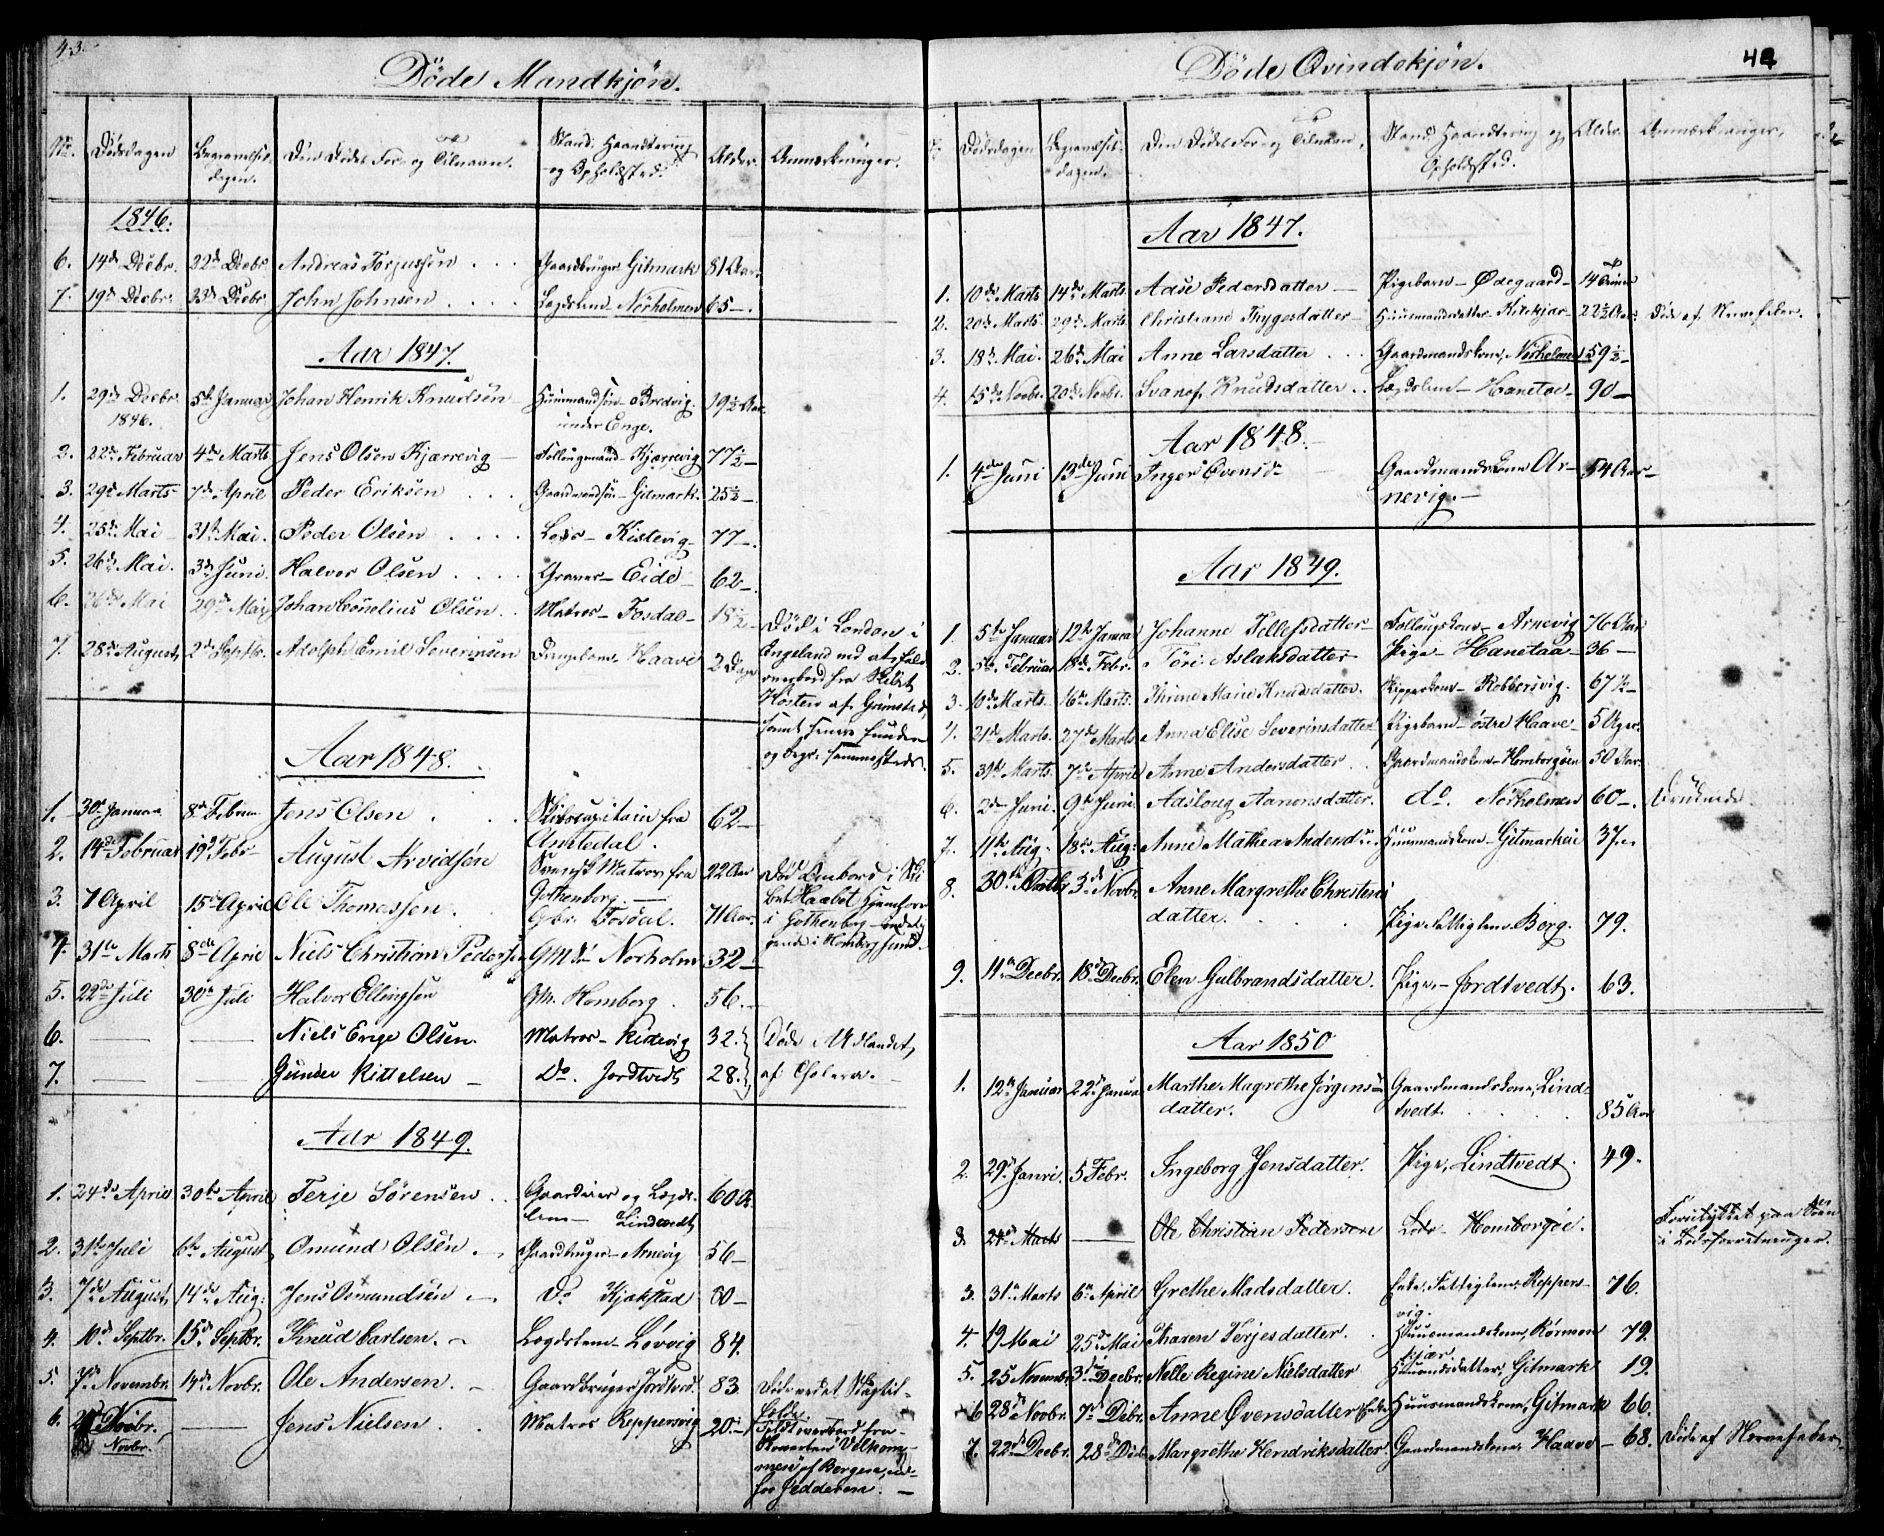 43.
Döde Mandkjön.
No. Dödsdagen Begravelsesdagen. Den Dödes For- og Tilnavn. Stand, Haandtering og Opholdssted. Alder. Anmærkninger.
1846.
6. 14de Decbr. 22de Decbr. Andreas Torjussen Gaardbruger Gitmark 81 Aar.
7. 19de Decbr. 23de Decbr. John Johnsen Lægdslem Nörholmen 65 -.
Aar 1847.
1. 29de Decbr. 1846. 5te Januar Johan Henrik Knudsen Huusmandsön - Bredvig under Enge. 19½ Aar.
2. 22de Februar 4de Marts Jens Olsen Kjærrevig Follaugsmand - Kjærrevig 77½ -
3. 29de Marts 7de April Peder Eriksen Gaardmandsön - Gitmark. 25½ -.
4. 25de Mai 31te Mai. Peder Olsen Lods - Kistevig - 77 -.
5. 26de Mai. 3de Juni. Halvor Olsen Graver - Eide - 62 -.
6. 26de Mai 29de Mai Johan Cornelius Olsen Matros - Fosdal - 18½ - Död i London i Engeland ved at falde overbord fra Skibet Hosten af Grimstad, samt senere funden og begr: sammesteds.
7. 28de August, 2de Septbr. Adolph Emil Severinsen Drengebarn Haave 2 Dage
Aar 1848.
1. 30te Januar 8de Februar Jens Olsen Skibscapitain fra Omdedal. 62 -
2. 14de Februar 19de Febr - August Arvidsön Svensk Matros fra Gothenborg - 22 Aar Död Ombord i Skibet Haabet hjemhörende i Gothenborg
3. 7 April 15de April Ole Thomassen Gbr. Fosdal. 71 Aar.
4. 31te Marts 8de April Niels Christian Pedersen GMdsön Norholm 32 -
5. 22de Juli 30te Juli Halvor Ellingsen Gm. Homborg. 56. -
6. — — Niels Enge Olsen. Matros - Kistevig 32. Döde i Udlandet, af Cholera. -
7. — — Gunder Kittelsen - Do. Jordtvedt 28.
Aar 1849.
1. 24de April 30te April Terje Sörensen Gaardeier og Lægdslem - Lindtvedt 60 A.
2. 31te Juli 6te August, Omund Olsen. - Gaardbruger - Arnevig 56 -
3. 7de August, 14de Aug: Jens Osmundsen - Do Kjøkstad 80 -
4. 10de Septbr. 15de Septbr. Knud Carlsen. - Lægdslem - Lövvig 84.
5. 7de Novembr. 14de Novbr. Ole Andersen. - Gaardbruger Jordtvedt. 83. Döde ved et Slagtilfælde.
6. Novbr. — Jens Nielsen. Matros Reppersvig 20. - Faldt overbord fra Skonnerten Velkommen af Bergen, udfor Jedderen. -
44
Döde Qvindekjön.
Dödsdagen Begravelsesdagen. Den Dödes For- og Tilnavn, Stand, Haandtering og Opholdssted. Alder. Anmærkninger,
Aar 1847.
1. 10de Marts 14de Marts. Aase Pedersdatter - Pigebarn - Ødegaard - 14 Timer
2. 20de Marts. 29de Marts. Christiane Thygesdatter - Huusmandsdatter Kirekjær - 22½ Aar. Döde af Nervefeber.
3. 18de Mai. 26de Mai Anne Larsdatter Gaardmandskone, Nörholmen 59½ -
4. 15de Novbr. 20de Novbr. Svanof Knudsdatter Lægdslem - Hanetoe - 90 -
Aar 1848.
1. 4de Juni 13de Juni Inger Evensdr Gaardmandskone Arnevig. - 54 Aar -
Aar 1849.
1. 5te Januar 12te Januar Johanne Tellefsdatter - Follaugskone - Arnevig 76 Aar
2. 5te Februar 18de Febr. Töri Aslaksdatter Pige - Hanetaa - 36 -
3. 10de Marts. 16de Marts. Thrine Marie Knudsdatter. Skipperskone - Robbersvig. 67½ -
4. 21de Marts. 27de Marts Anna Elise Severinsdatter Pigebarn - östre Haave - 5 Uger.
5. 31te Marts. 7de April Anne Andersdatter. Gaardmandskone - Homborgöen 50 Aar.
6. 2de Juni. 9de Juni. Aaslaug Aanonsdatter. do. Nörholmen 60 -. Druknede
7. 11te Aug. 18de Aug: Anne Mathea Andersdr Huusmandskone - Gitmarkeie 37 -.
8. 30te Octbr 3de Novbr. Anne Margrethe Christensdatter. Pige, Fattiglem Borg. 79.
9. 11te Decbr. 18de Decbr. Elen Gulbrandsdatter. Pige, - Jordtvedt. 63.
Aar 1850
1. 12te Januar 22de Januar Marthe Magrethe Jörgensdatter. Gaardmandskone, Lindtvedt 85 Aar
2. 29de Janri. 5 Febr. Ingeborg Jensdatter. Pige, Lindtvedt. 49.
3. 24de Marts — Ole Christian Pedersen Lods - Homborgöe. Forulykket paa Söen i Lodsforretninger.
3. 31te Marts 6te April Grethe Madsdatter. Enke, Fattiglem, Reppersvig. 76.
4. 19 Mai 25de Mai Maren Terjesdatter. Huusmandskone, Rörmonkjær. 79.
5. 25 Novembr. 3de Decbr. Nelle Regine Nielsdatter Huusmdsdatter, Gitmark 19.
6 28de Novbr. 7de Debr. Anne Övensdatter Enke Huusmandskone, Gitmark 66.
7. 22de Decbr. 28de Decbr Margrethe Hendriksdatter. Gaardmandskone, Haave - 68. Döde af Nervefeber.